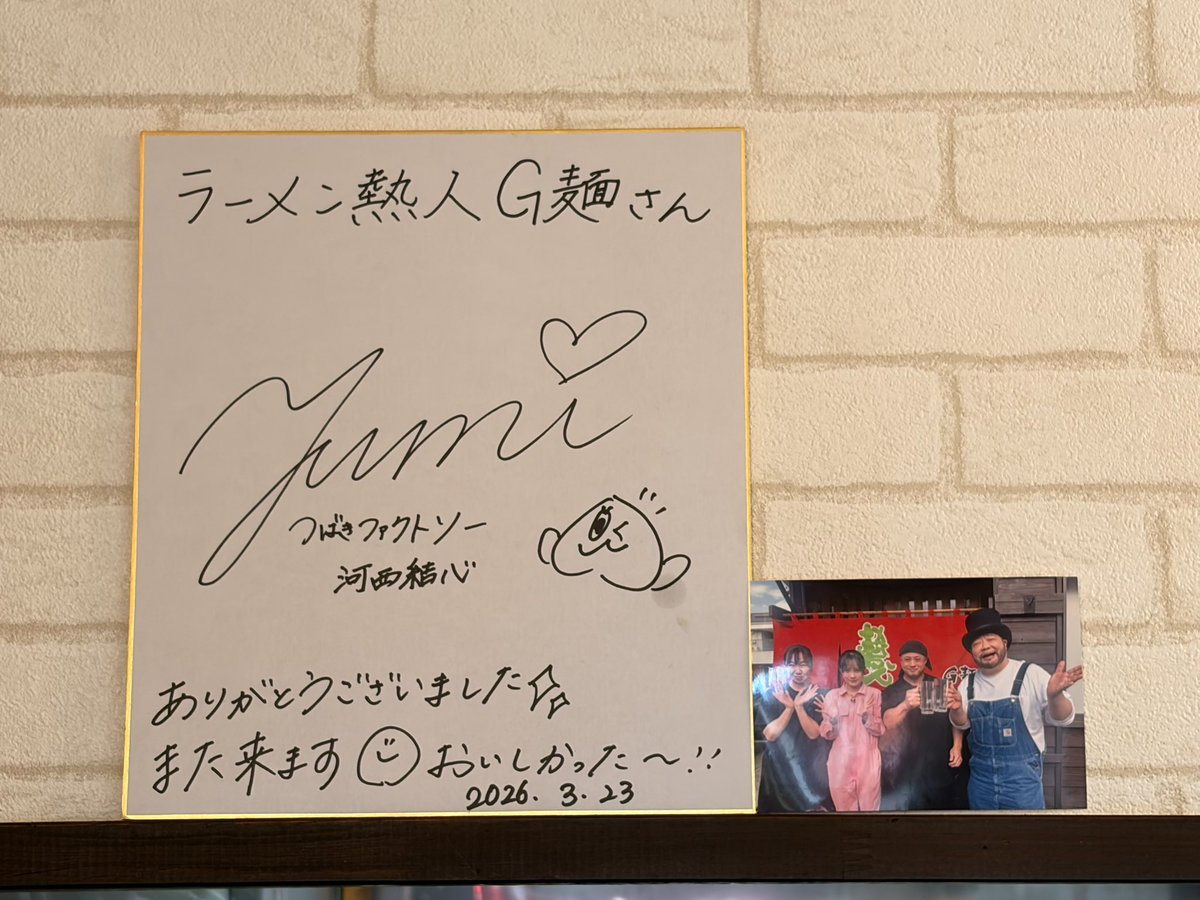 ラーメン熱人 G麺さん
Yumi
つばきファクトリー
河西結心
ありがとうございました
また来ます おいしかった〜!!
2026. 3. 23